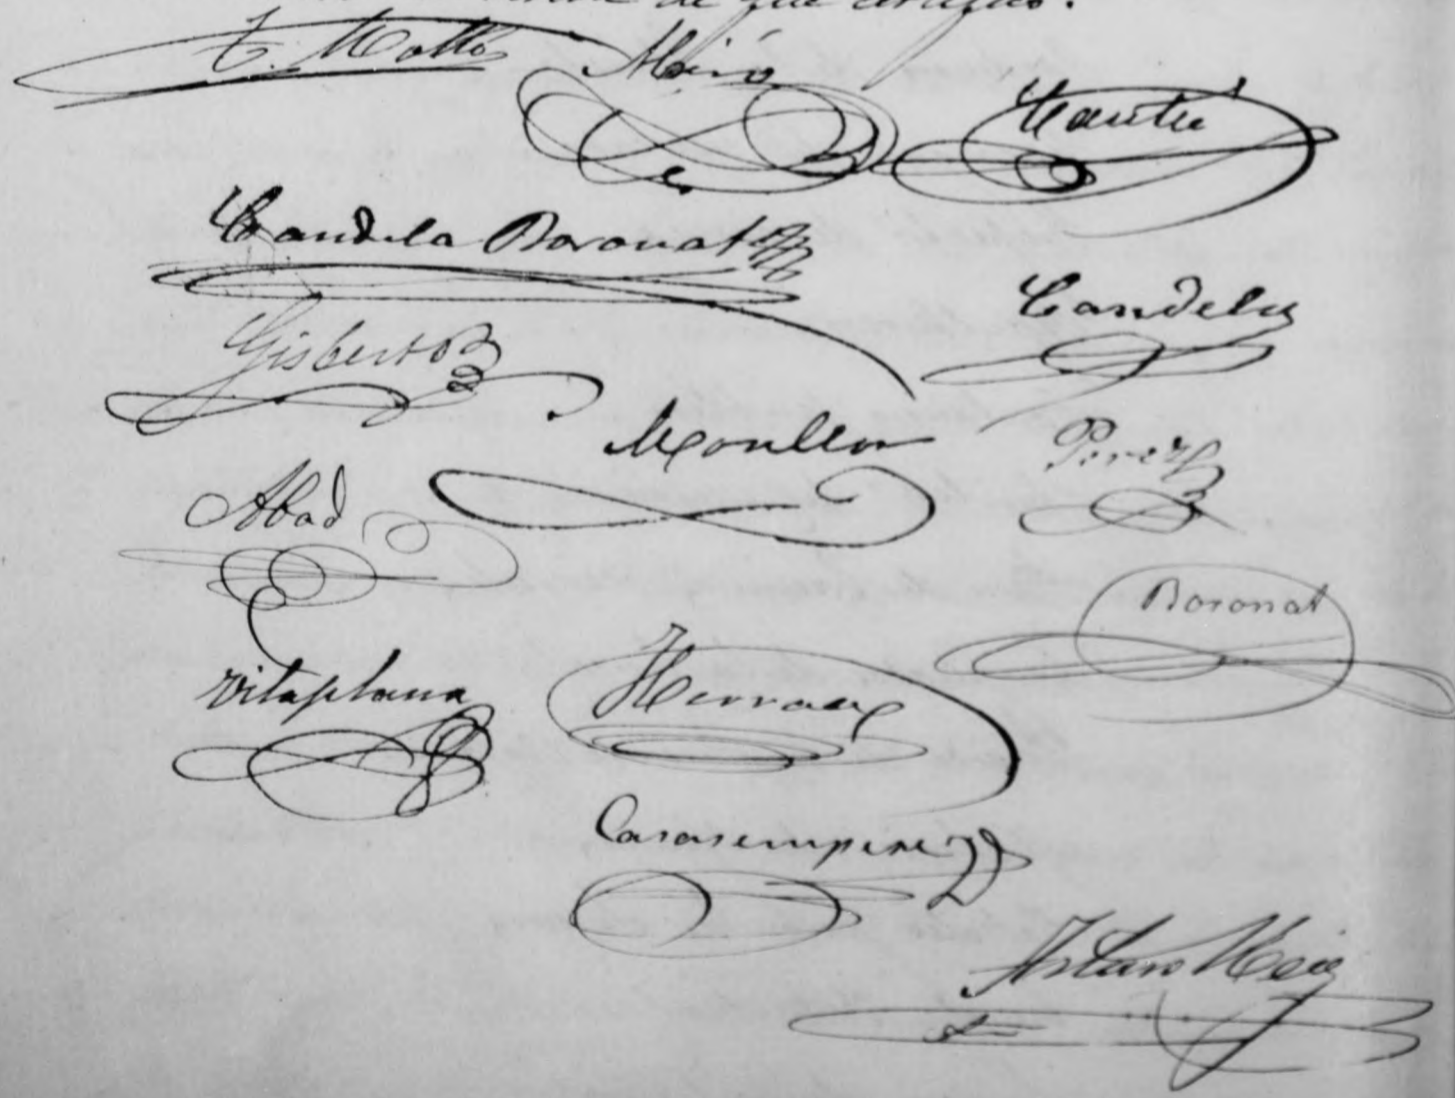 de que certifico.
T. Moltó
Miró
Cantó
Candela Boronat
Candela
Gisbert
Moullor
Perez
Abad
Boronat
Vilaplana
Herraez
Casasempere
Arturo Mei